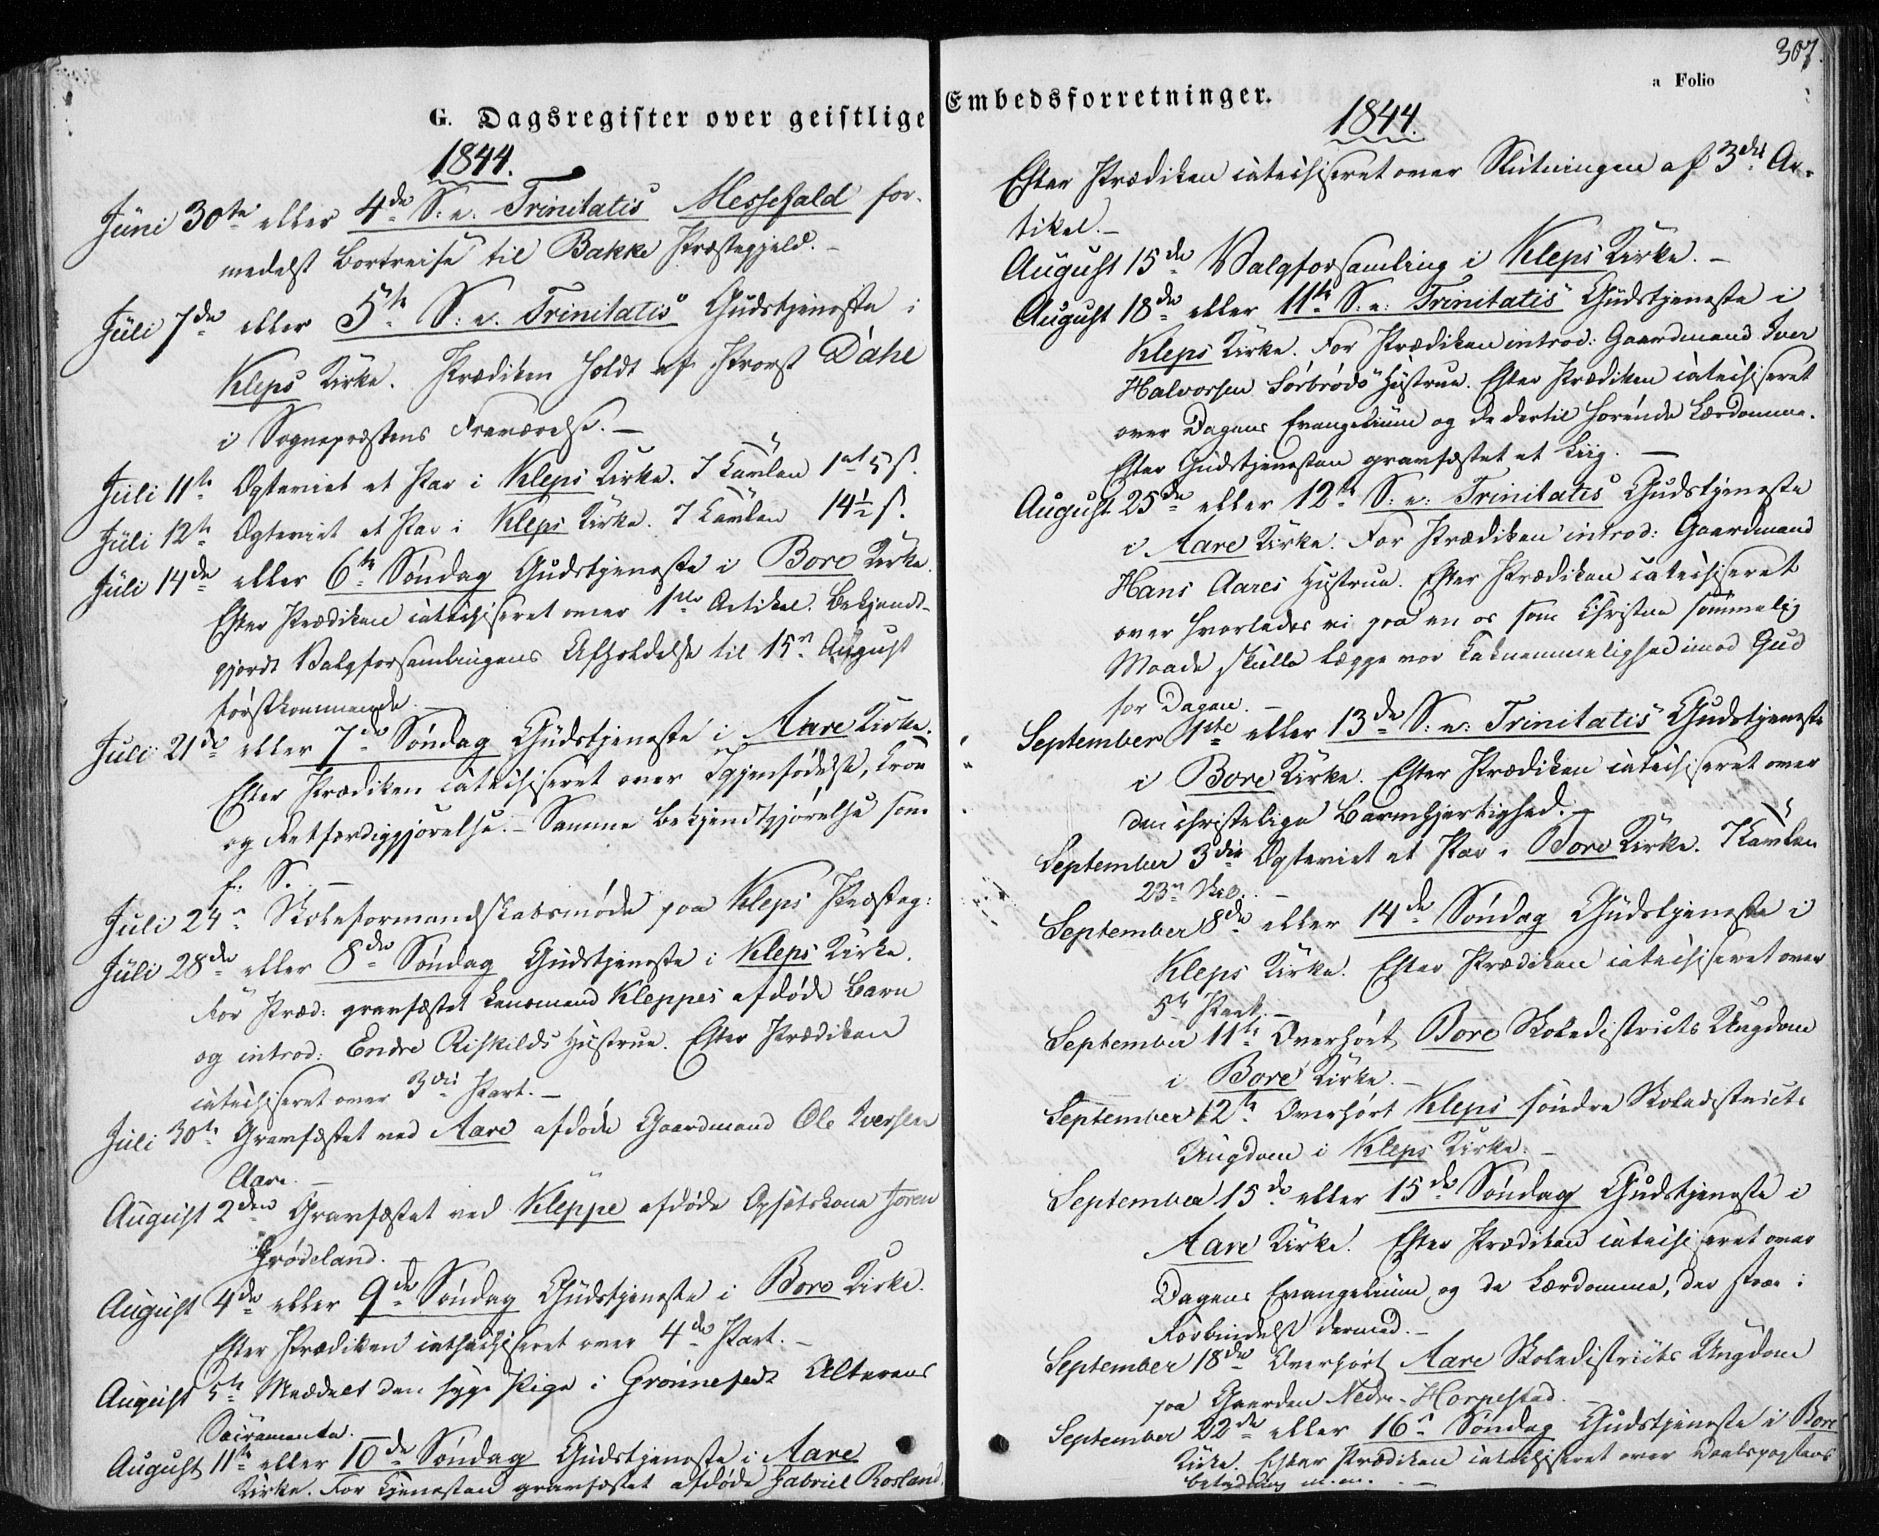 G. Dagsregister over geistlige
1844.
Juni 30te eller 4de S: e: Trinitatis Messefald for-
medelst Bortreise til Bakke Præstegjeld. -
Juli 7de eller 5te S: e. Trinitatis Gudstjeneste i
Kleps Kirke. Prædiken holdt af Provst Dahl
i Sognepræstens Fraværelse. -
Juli 11te Ægteviet et Par i Kleps Kirke. I Tavlen 1 ort 5 ß.
Juli 12te Ægteviet et Par i Kleps Kirke. I Tavlen 14½ ß.
Juli 14de eller 6te Søndag Gudstjeneste i Bore Kirke.
Efter Prædiken catechiseret over 1ste Artikel. Bekjendt-
gjordt Valgforsamlingens Afholdelse til 15de August
førstkommende. -
Juli 21de eller 7de Søndag Gudstjeneste i Aare Kirke.
Efter Prædiken catechiseret over Igjenfødelse, Troe
og Retfærdiggjørelse. - Samme Bekjendtgjørelse som
f. S. -
Juli 24de Skoleformandskabsmøde paa Kleps Præsteg:
Juli 28de eller 8de Søndag Gudstjeneste i Kleps Kirke.
Før Præd: gravfæstet Lensmand Kleppes afdøde Barn
og introd: Endre Riskilds Hustrue. Efter Prædiken
catechiseret over 3die Part. -
Juli 30te Gravfæstet ved Aare afdøde Gaardmand Ole Iversen
Aare. -
August 2den Gravfæstet ved Kleppe afdøde Opsetskone Joren
Grødeland. -
August 4de eller 9de Søndag Gudstjeneste i Bore Kirke.
Efter Prædiken cathechiseret over 4de Part. -
August 5te Meddelt den syge Pige i Grønnefedt Alterens
Sacramente. -
August 11te eller 10de Søndag Gudstjeneste i Aare
Kirke. Før Tjenesten gravfæstet afdøde Gabriel Rosland.
Embedsforretninger.
a Folio
307.
1844.
Efter Prædiken catechiseret over Slutningen af 3die Ar-
tikel. -
August 15de Valgforsamling i Kleps Kirke. -
August 18de eller 11te S. e: Trinitatis Gudstjeneste i
Kleps Kirke. Før Prædiken introd: Gaardmand Iver
Halvorsen Sørbrøds Hustrue. Efter Prædiken catechiseret
over Dagens Evangelium og de dertil hørende Lærdomme.
Efter Gudstjenesten gravfæstet et Liig. -
August 25de eller 12te S: e: Trinitatis Gudstjeneste
i Aare Kirke. Før Prædiken introd: Gaardmand
Hans Aares Hustrue. Efter Prædiken catechiseret
over hvorledes vi paa en os som Christne sømmelig
Maade skulle lægge vor Taknemmelighed imod Gud
for Dagen. -
September 1ste eller 13de S: e: Trinitatis Gudstjeneste
i Bore Kirke. Efter Prædiken catechiseret over
den christelige Barmhjertighed. -
September 3die Ægteviet et Par i Bore Kirke. I Tavlen
23 Skill. -
September 8de eller 14de Søndag Gudstjeneste i
Kleps Kirke. Efter Prædiken catechiseret over
5te Part. -
September 11te Overhørt Bore Skoledistricts Ungdom
i Bore Kirke. -
September 12te Overhørt Kleps søndre Skoledistricts
Ungdom i Kleps Kirke. -
September 15de eller 15de Søndag Gudstjeneste i
Aare Kirke. Efter Prædiken catechiseret over
Dagens Evangelium og de Lærdomme, der staae i
Forbindelse dermed. -
September 18de Overhørt Aare Skoledistricts Ungdom
paa Gaarden Nedre-Horpestad. -
September 22de eller 16de Søndag Gudstjeneste i Bore
Kirke. Efter Prædiken catechiseret over Daabspagtens
betydning m.m. -